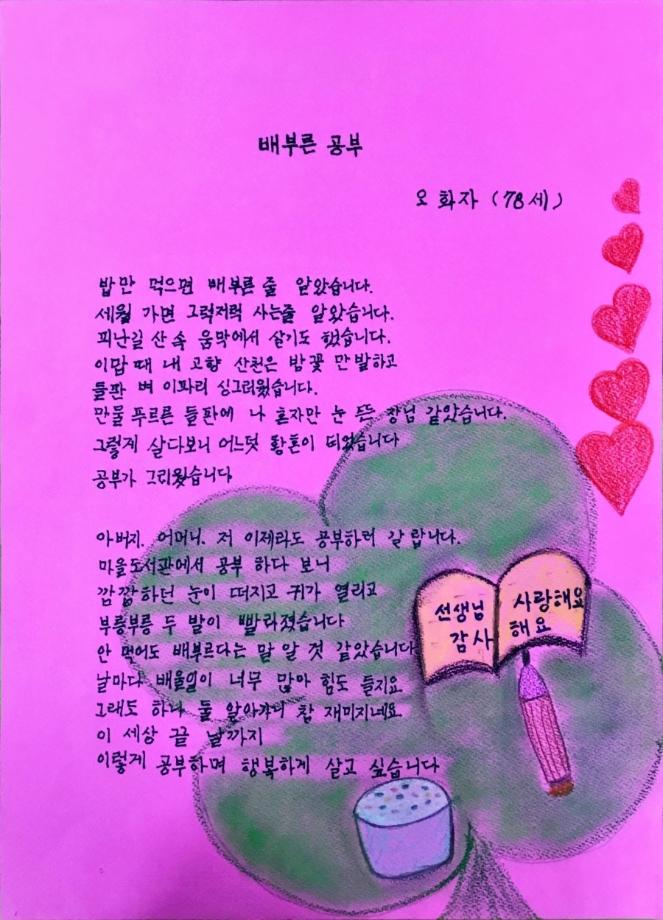 배부른 공부
오 화자 (78세)
밥만 먹으면 배부른 줄 알았습니다.
세월 가면 그럭저럭 사는줄 알았습니다.
피난길 산 속 움막에서 살기도 했습니다.
이맘 때 내 고향 산천은 밤꽃 만발하고
들판 벼 이파리 싱그러웠습니다.
만물 푸르른 들판에 나 혼자만 눈 뜬 장님 같았습니다.
그렇게 살다보니 어느덧 황혼이 되었습니다
공부가 그리웠습니다
아버지. 어머니. 저 이제라도 공부하러 갈 랍니다.
마을도서관에서 공부 하다 보니
깜깜하던 눈이 떠지고 귀가 열리고
부릉부릉 두 발이 빨라졌습니다
안 먹어도 배부르다는 말 알 것 같았습니다
날마다 배울일이 너무 많아 힘도 들지요
그래도 하나 둘 알아가니 참 재미지네요
이 세상 끝 날까지
이렇게 공부하며 행복하게 살고 싶습니다
선생님 사랑해요
감사 해요